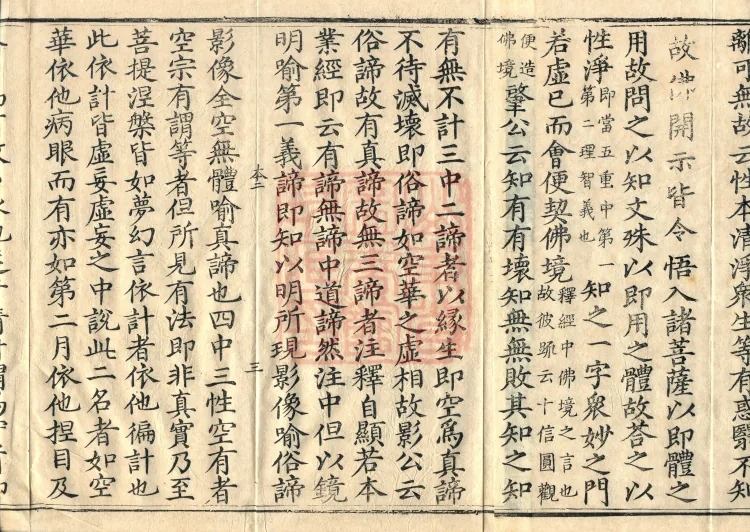 離可無故云性本清淨衆生等有惑翳不知
故佛開示皆令悟入諸菩薩以即體之
用故問之以知文殊以即用之體故荅之以
性淨即當五重中第一第二理智義也知之一字衆妙之門
若虛已而會便契佛境釋經中佛境之言也故彼䟽云十信圓觀
便造佛境肇公云知有有壞知無無敗其知之知
有無不計三中二諦者以緣生即空爲真諦
不待滅壞即俗諦如空華之虛相故影公云
俗諦故有真諦故無三諦者注釋自顯若本
業經即云有諦無諦中道諦然注中但以鏡
明喻第一義諦即知以明所現影像喻俗諦
本二 三
影像全空無體喻真諦也四中三性空有者
空宗有謂等者但所見有法即非真實乃至
菩提涅槃皆如夢幻言依計者依他徧計也
此依計皆虛妄虛妄之中說此二名者如空
華依他病眼而有亦如第二月依他捏目及